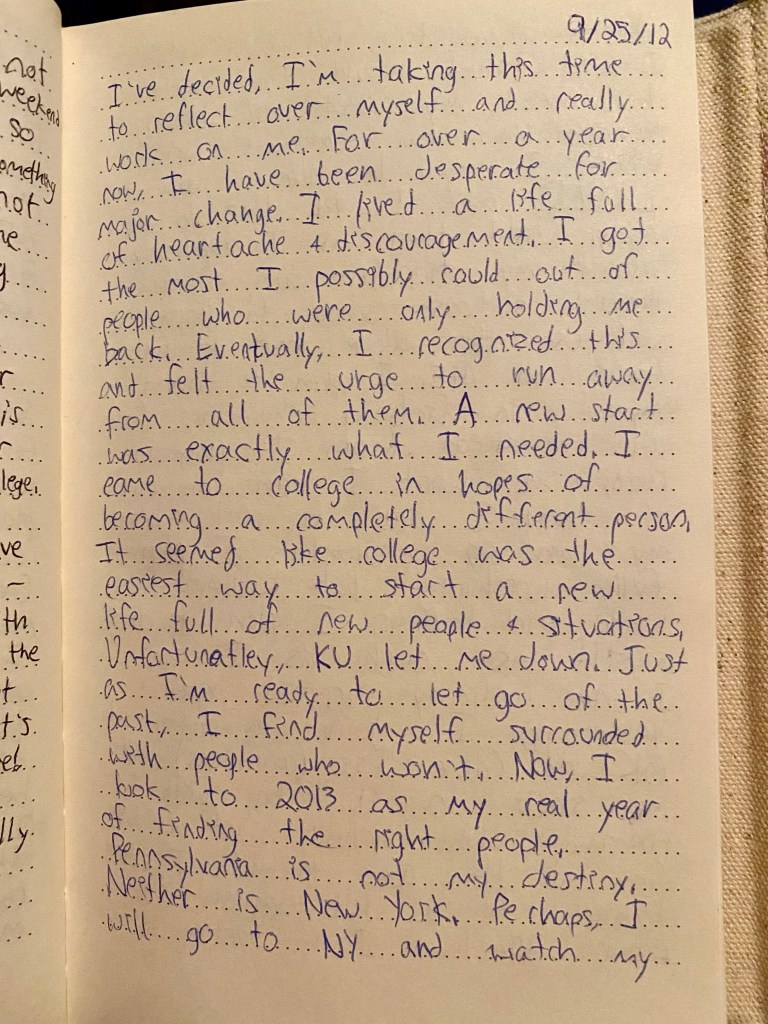 not
weekend
so
omething
not
ne
g.
r
is
r
lege.
ve
–
th
the
t
t's
lly.
9/25/12
I've decided, I'm taking this time
to reflect over myself and really
work on me. For over a year
now, I have been desperate for
major change. I lived a life full
of heartache & discouragement. I got
the most I possibly could out of
people who were only holding me
back. Eventually, I recognized this
and felt the urge to run away
from all of them. A new start
was exactly what I needed. I
came to college in hopes of
becoming a completely different person.
It seemed like college was the
easiest way to start a new
life full of new people & situations.
Unfortunatley, KU let me down. Just
as I'm ready to let go of the
past, I find myself surrounded
with people who won't. Now, I
look to 2013 as my real year
of finding the right people.
Pennsylvania is not my destiny.
Neither is New York. Perhaps, I
will go to NY and watch my